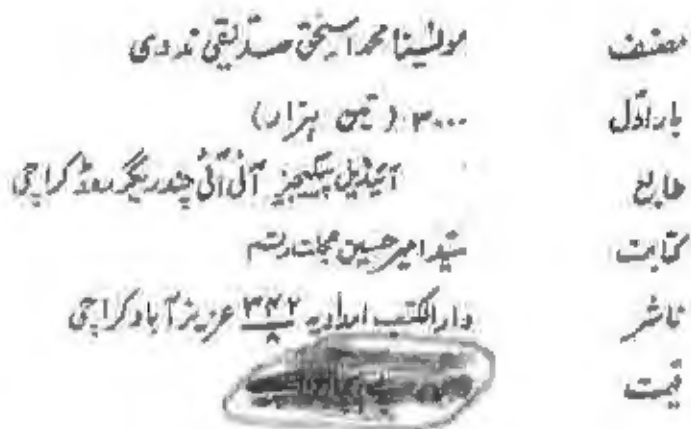 مصنف مولٰینا محمد اسحٰق صدیقی ندوی
بار اوّل ۳۰۰۰ (تین ہزار)
طابع آئیڈیل پیکیجز آئی آئی چندریگر روڈ کراچی
کتابت سیّد امیر حسین
ناشر دارالکتب امدادیہ ۳۴۲/۸ عزیز آباد کراچی
قیمت